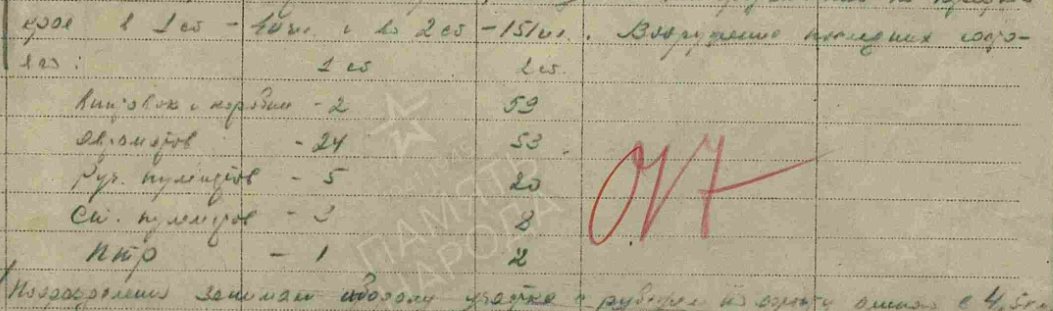 крае в 1 сб - 40 чел. и во 2 сб - 151 чел. Вооружение последних состо-
яло:
1 сб 2 сб.
Винтовок и карабин - 2 59
Автоматов - 24 53
Руч. пулеметов - 5 20
Ст. пулеметов - 3 8
ПТР - 1 2
Подразделения занимают оборону участка с рубежом по фронту 4,5км
ПАМЯТЬ
НАРОДА